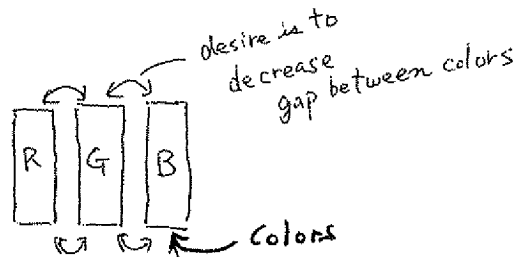 desire is to
decrease
gap between colors
R G B
colors